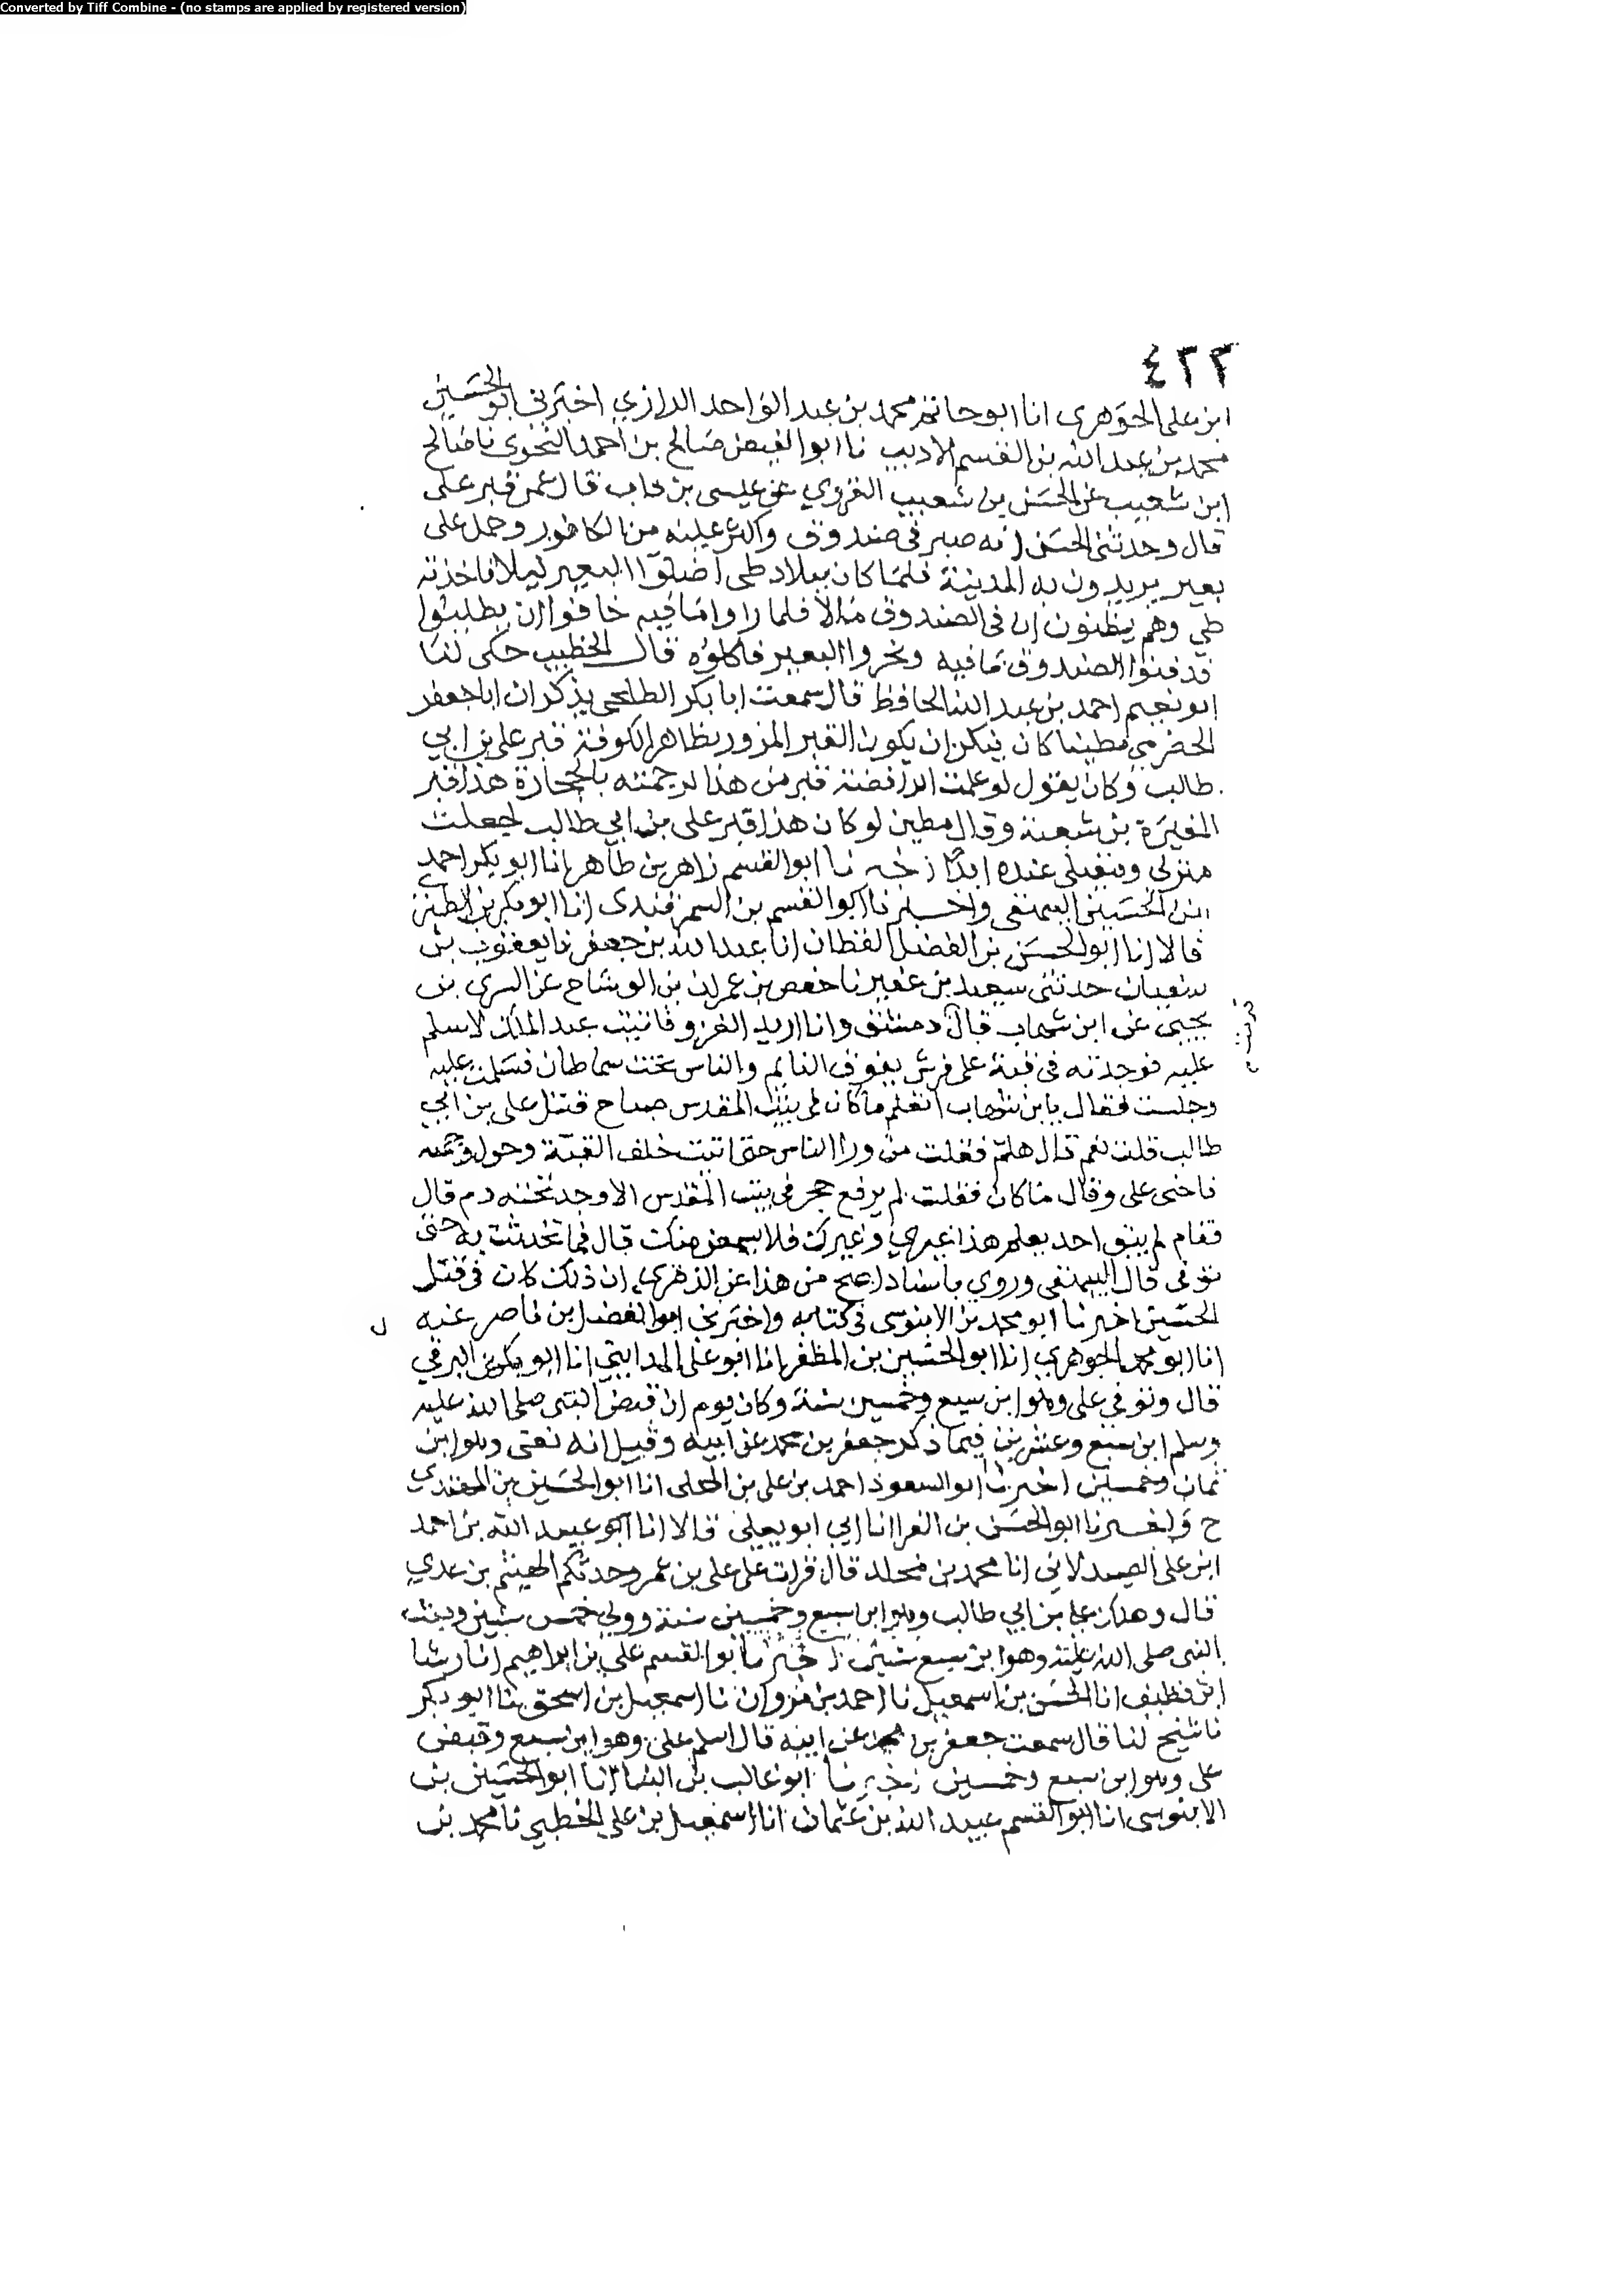 Converted by Tiff Combine - (no stamps are applied by registered version)
٤٢٢
ابن علي الجوهري انا ابو حاتم محمد بن عبد الواحد الرازي اخبرني ابو الحسين
محمد بن عبد الله بن القسم الاديب نا ابو الفيض صالح بن احمد النحوي نا صالح
ابن شعيب عن الحسن بن شعيب الفروي عن عيسى بن داب قال عمى قبر على
قال وحدثني الحسن انه صير في صندوق واكثر عليه من الكافور وحمل على
بعير يريدون به المدينة فلما كان ببلاد طي اضلوا البعير ليلا فاخذته
طي وهم يظنون ان في الصندوق مالا فلما راوا ما فيه خافوا ان يطلبوا
فدفنوا الصندوق بما فيه ونحروا البعير فاكلوه قال الخطيب حكى لنا
ابو نعيم احمد بن عبد الله الحافظ قال سمعت ابا بكر الطلحي يذكر ان ابا جعفر
الحضرمي مطينا كان ينكر ان يكون القبر المزور بظاهر الكوفة قبر على بن ابي
طالب وكان يقول لو علمت الرافضة قبر من هذا لرجمته بالحجارة هذا قبر
المغيرة بن شعبة وقال مطين لو كان هذا قبر على بن ابي طالب لجعلت
منزلي ومقيلي عنده ابدا اخبرنا ابو القسم زاهر بن طاهر انا ابو بكر احمد
ابن الحسين البيهقي واخبرنا ابو القسم بن السمرقندي انا ابو بكر بن الطبري
قالا انا ابو الحسين بن الفضل القطان انا عبد الله بن جعفر نا يعقوب بن
سفيان حدثني سعيد بن عفير نا حفص بن عمران بن الوشاح عن السري بن
يحيى عن ابن شهاب قال دمشق وانا اريد الغزو فاتيت عبد الملك لاسلم
قدمت
عليه فوجدته في قبة على فرش يفوق القايم والناس تحت سماطان فسلمت عليه
وجلست فقال يا بن شهاب اتعلم ما كان في بيت المقدس صباح قتل على بن ابي
طالب قلت نعم قال هلم فقلت من ورا الناس حتى اتيت خلف القبة وحول وجهه
فاحنى على وقال ما كان فقلت لم يرفع حجر في بيت المقدس الا وجد تحته دم قال
فقام لم يبق احد يعلم هذا غيري وغيرك فلا يسمعن منك قال فما تحدثت به حتى
توفى قال البيهقي وروي باسناد اصح من هذا عن الزهري ان ذلك كان في قتل
الحسين اخبرنا ابو محمد بن الابنوسي في كتابه واخبرني ابو الفضل بن ناصر عنه
انا ابو محمد الجوهري انا ابو الحسين بن المظفر انا ابو على المدايني انا ابو بكر بن البرقي
قال وتوفي على وهو ابن سبع وخمسين سنة وكان يوم ان قبض النبي صلى الله عليه
وسلم ابن سبع وعشرين فيما ذكر جعفر بن محمد عن ابيه وقيل انه توفى وهو ابن
ثمان وخمسين اخبرنا ابو السعود احمد بن على بن المجلى انا ابو الحسين بن المهتدي
ح واخبرنا ابو الحسين بن الفرا انا ابي ابو يعلى قالا انا ابو عبيد الله بن احمد
ابن على الصيدلاني انا محمد بن مخلد قال قرات على على بن عمرو حدثكم الهيثم بن عدي
قال وهلك على بن ابي طالب وهو ابن سبع وخمسين سنة وولي خمس سنين وبعث
النبي صلى الله عليه وهو ابن سبع سنين اخبرنا ابو القسم علي بن ابراهيم انا رشا
ابن نظيف انا الحسن بن اسمعيل نا احمد بن مروان نا اسمعيل بن اسحق نا ابو بكر
نا شيخ لنا قال سمعت جعفر بن محمد عن ابيه قال اسلم على وهو ابن سبع وقبض
على وهو ابن سبع وخمسين اخبرنا ابو غالب بن البنا انا ابو الحسين بن
الابنوسي انا ابو القسم عبيد الله بن عثمان انا اسمعيل بن علي الخطبي نا محمد بن